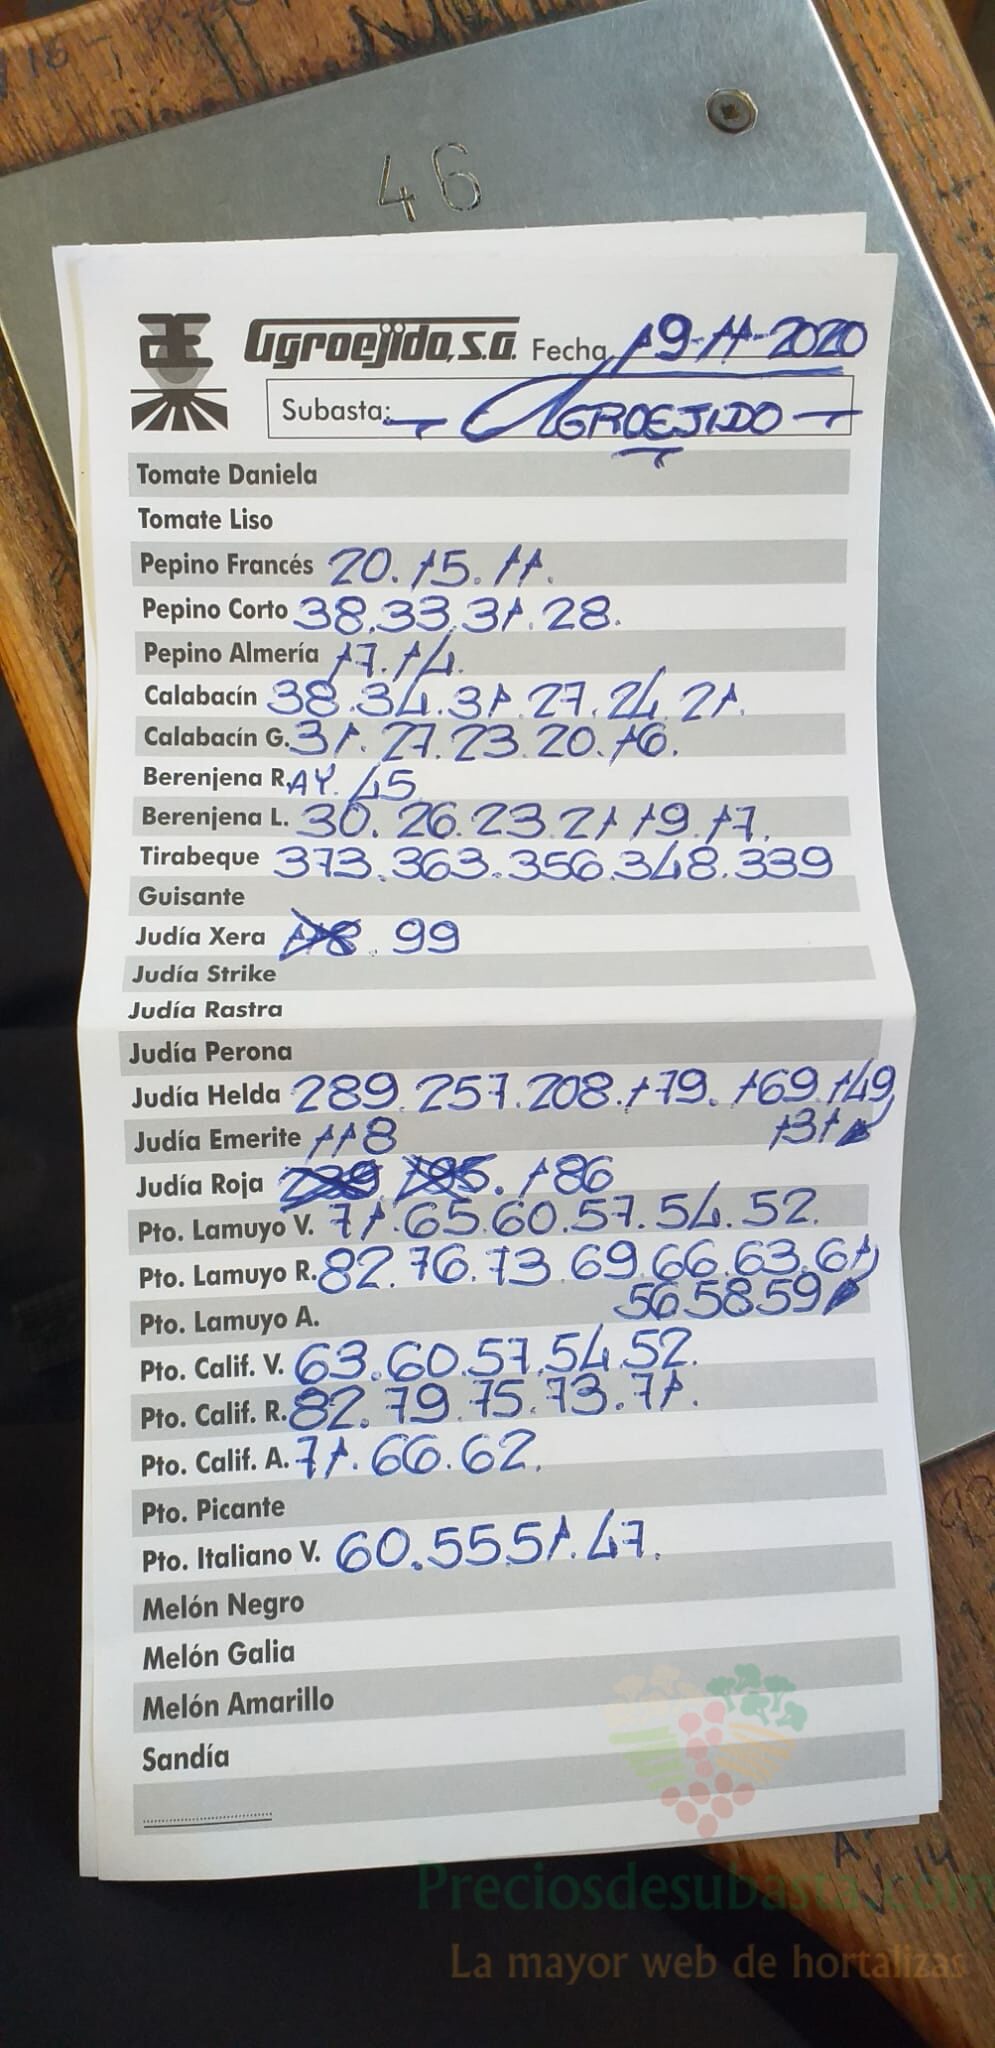 46
Agroejido, s.a. Fecha 19-11-2020
Subasta: - AGROEJIDO -
Tomate Daniela
Tomate Liso
Pepino Francés 20. 15. 11.
Pepino Corto 38.33.31.28.
Pepino Almería 17.14.
Calabacín 38.34.31.27.24.21.
Calabacín G. 31.27.23.20.16.
Berenjena R. AY. 45
Berenjena L. 30.26.23.21 19.17.
Tirabeque 373.363.356.348.339
Guisante
Judía Xera 118. 99
Judía Strike
Judía Rastra
Judía Perona
Judía Helda 289.257.208.179.169.149
131
Judía Emerite 118
Judía Roja 186
Pto. Lamuyo V. 71.65.60.57.54.52.
Pto. Lamuyo R. 82.76.73.69.66.63.61
56 58 59
Pto. Lamuyo A.
Pto. Calif. V. 63.60.57.54.52.
Pto. Calif. R. 82.79.75.73.71.
Pto. Calif. A. 71.66.62.
Pto. Picante
Pto. Italiano V. 60.55.51.47.
Melón Negro
Melón Galia
Melón Amarillo
Sandía
14
Preciosdesubasta.com
La mayor web de hortalizas